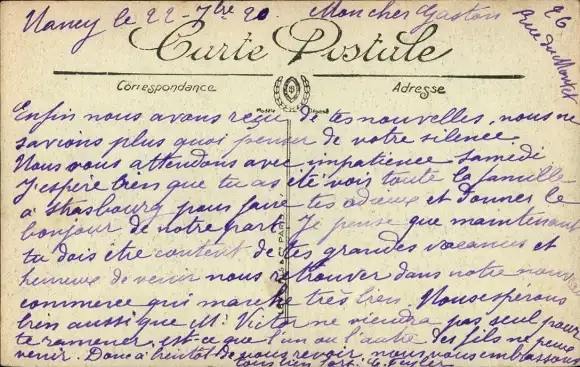 Nancy le 22-7bre 20. Mon cher Gaston
26 Rue du Montet
Carte Postale
Correspondance
Adresse
Modèle Déposé
Enfin nous avons reçu de tes nouvelles, nous ne
savions plus quoi penser de votre silence.
Nous vous attendons avec impatience samedi
J'espère bien que tu as été voir toute la famille
à Strasbourg pour faire tes adieux et donner le
bonjour de notre part. Je pense que maintenant
tu dois être content de tes grandes vacances et
heureux de venir nous retrouver dans notre nouveau
commerce qui marche très bien. Nous espérons
bien aussi que Mr Victor ne viendra pas seul pour
te ramener, est-ce que l'un ou l'autre des fils ne peut
venir. Donc à bientôt de vous revoir, nous vous embrassons
tous bien fort.